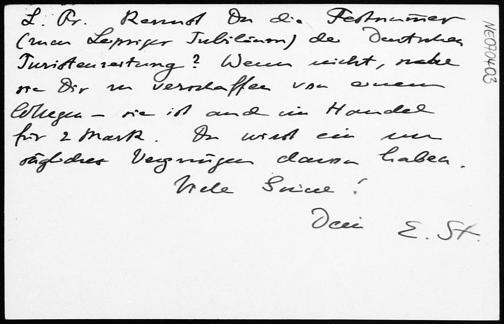 L. Pr. Kennst Du die Festnummer
(zum Leipziger Jubiläum) der Deutschen
Juristenzeitung? Wenn nicht, suche
sie Dir zu verschaffen von einem
Kollegen – sie ist auch im Handel
für 2 Mark. Du wirst ein un
sägliches Vergnügen daran haben.
Viele Grüsse!
Dein E. St.
NE070403